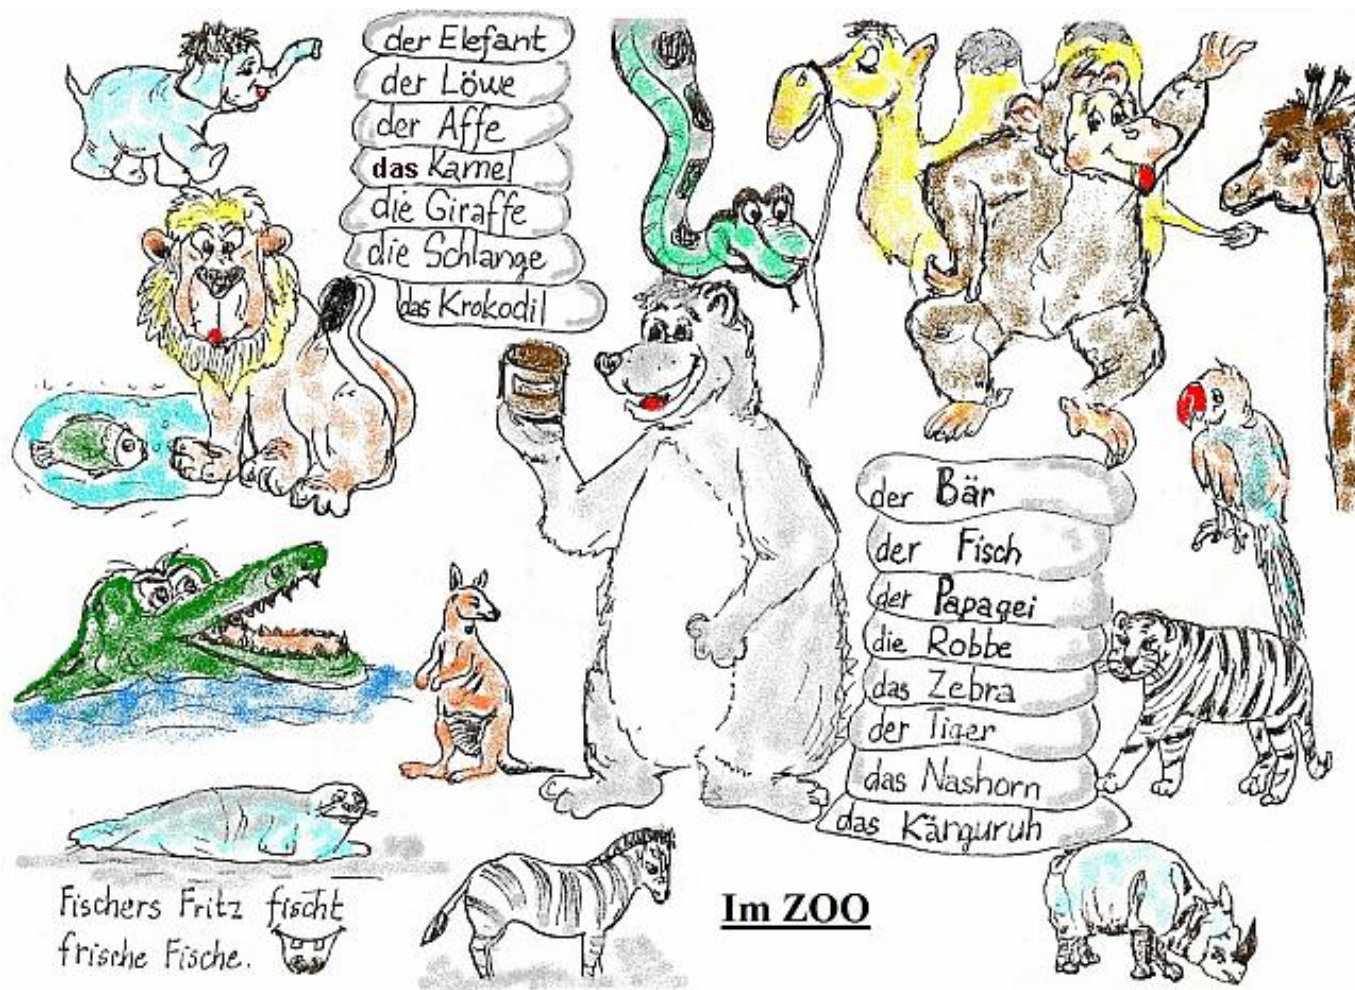 der Elefant
der Löwe
der Affe
das Kamel
die Giraffe
die Schlange
das Krokodil
der Bär
der Fisch
der Papagei
die Robbe
das Zebra
der Tiger
das Nashorn
das Kärguruh
Fischers Fritz fischt
frische Fische.
Im ZOO